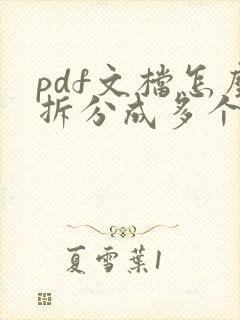 pdf文档怎麼
拆分成多个
夏雪葉1